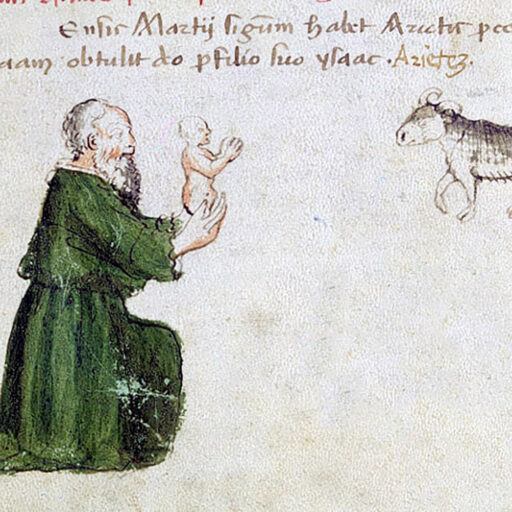 Ensis Martij signum habet Arietis
obtulit do p filio suo ysaac . Arietez.